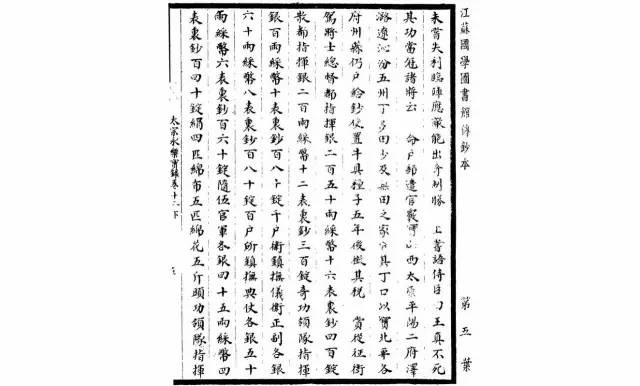 江蘇國學圖書館傳鈔本
第五葉
未嘗失利臨陣應策能出奇制勝 上嘗語侍臣曰王真不死
其功當冠諸將云 命戶部遣官覈實山西太原平陽二府澤
潞遼沁汾五州丁多田少及無田之家分其丁口以實北平各
府州縣仍戶給鈔使置牛具種子五年後徵其稅 賞從征衛
駕將士總督都指揮銀二百五十兩綵幣十六表裏鈔四百錠
散都指揮銀二百兩綵幣十二表裏鈔三百錠奇功領隊指揮
銀百兩綵幣十表裏鈔百八十錠千戶衛鎮撫儀衛正副各銀
六十兩綵幣八表裏鈔百八十錠百戶所鎮撫典仗各銀五十
兩綵幣六表裏鈔百六十錠隨伍官軍各銀四十五兩綵幣四
表裏鈔百四十錠絹四匹綿布五匹綿花五斤頭功領隊指揮
太宗永樂實錄卷十二下